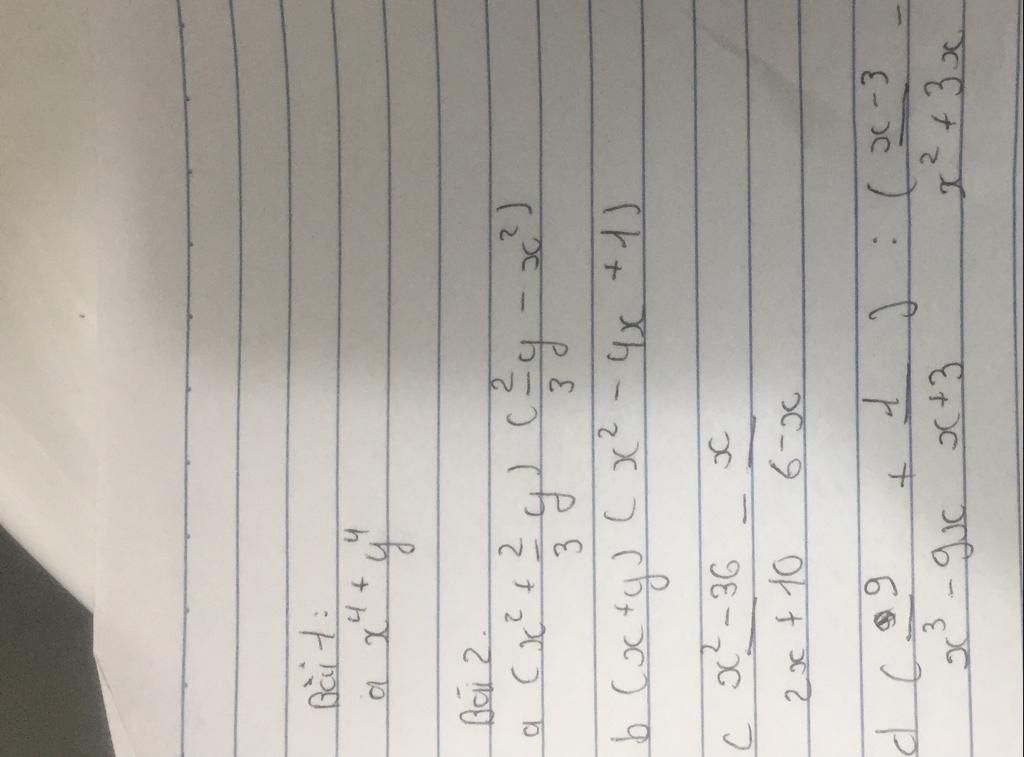 Bài 1:
a x⁴ + y⁴
Bài 2.
a (x² + 2/3 y) (2/3 y - x²)
b (x + y) (x² - 4x + 1)
c x² - 36 / 2x + 10 - x / 6 - x
d ( 9 / x³ - 9x + 1 / x + 3 ) : ( x - 3 / x² + 3x -